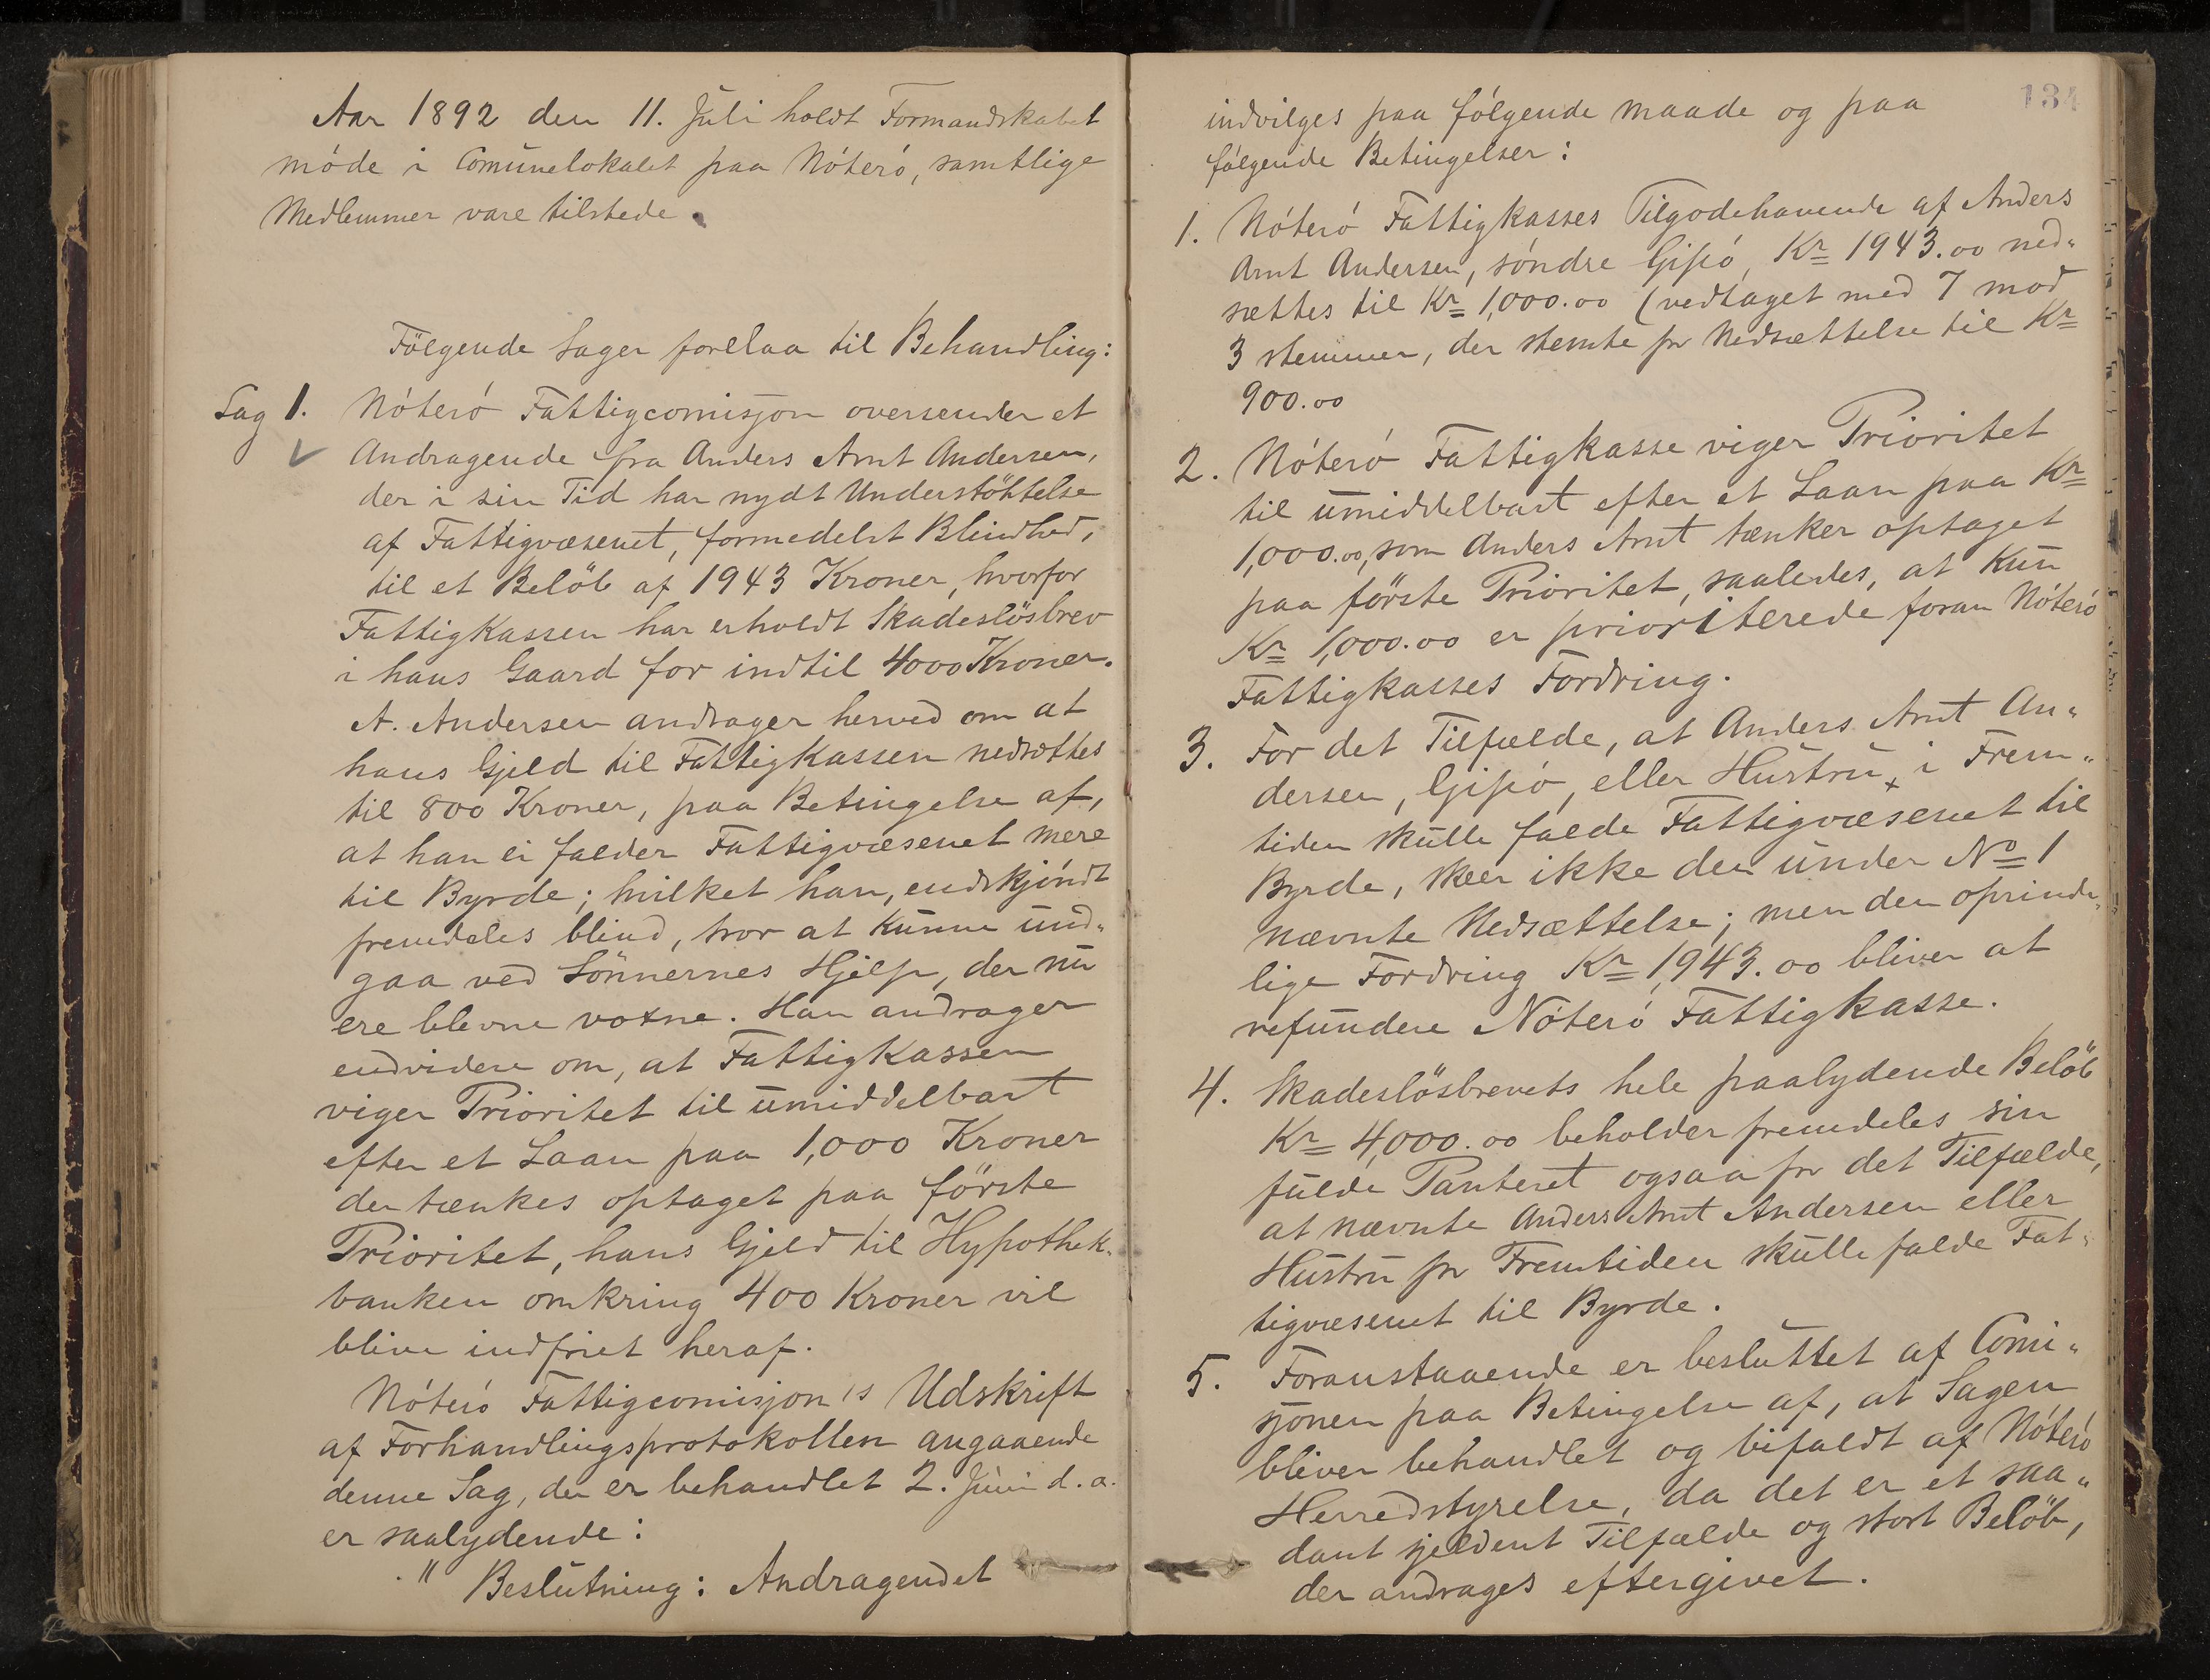 Aar 1892 den 11. Juli holdt Formandskabet
möde i Comünelokalet paa Nóteró, samtlige
Medlemmer vare tilstede.
Fölgende Sager forelaa til Behandling:
Sag 1. Nóteró Fattigcomisjon oversender et
Andragende fra Anders Arnt Andersen,
der i sin Tid har nydt Understöttelse
af Fattigvæsenet, formedelst Blindhed,
til et Belöb af 1943 Kroner, hvorfor
FattigKassen har erholdt Skadeslösbrev
i hans Gaard for indtil 4000 Kroner.
A. Andersen andrager herved om at
hans Gjeld til FattigKassen nedsættes
til 800 Kroner, paa Betingelse af,
at han ei falder Fattigvæsenet mere
til Byrde; hvilket han, endskjöndt
fremdeles blind, tror at Kunne und„
gaa ved Sönnernes Hjelp, der nu
ere blevne voxne. Han andrager
endvidere om, at FattigKassen
viger Prioritet til umiddelbart
efter et Laan paa 1,000 Kroner
der tænkes optaget paa förste
Prioritet, hans Gjeld til Hypothek„
banken omkring 400 Kroner vil
blive indfriet heraf.
Nóteró Fattigcomisjon's Udskrift
af Forhandlingsprotokollen angaaende
denne Sag, der er behandlet 2. Juni d. a.
er saalydende:
" Beslutning: Andragendet
134
indvilges paa fölgende Maade og paa
fölgende Betingelser:
1. Nóteró Fattigkasses Tilgodehavende af Anders
Arnt Andersen, söndre Gipó, Kr 1943.00 ned„
sættes til Kr 1,000.00 (vedtaget med 7 mod
3 stemmer, der stemte for Nedsættelse til Kr
900.00
2. Nóteró Fattigkasse viger Prioritet
til umiddelbart efter et Laan paa Kr
1,000.00, som Anders Arnt tænker optaget
paa förste Prioritet, saaledes, at Kun
Kr 1,000.00 er prioriterede foran Nóteró
Fattigkasses Fordring.
3. For det Tilfælde, at Anders Arnt An„
dersen, Gipó, eller Hustru, i Frem„
tiden skulle falde Fattigvæsenet til
Byrde, skeer ikke den under No 1
nævnte Nedsættelse; men den oprinde„
lige Fordring Kr 1,943.00 bliver at
refundere Nóteró Fattigkasse.
4. Skadeslösbrevets hele paalydende Belöb
Kr 4,000.00 beholder fremdeles sin
fulde Panteret ogsaa for det Tilfælde,
at nævnte Anders Arnt Andersen eller
Hustru for Fremtiden skulle falde Fat„
tigvæsenet til Byrde.
5. Foranstaaende er besluttet af Comi„
sjonen paa Betingelse af, at Sagen
bliver behandlet og bifaldt af Nóteró
Herredstyrelse, da det er et saa„
dant sjeldent Tilfælde og stort Belöb,
der andrages eftergivet.